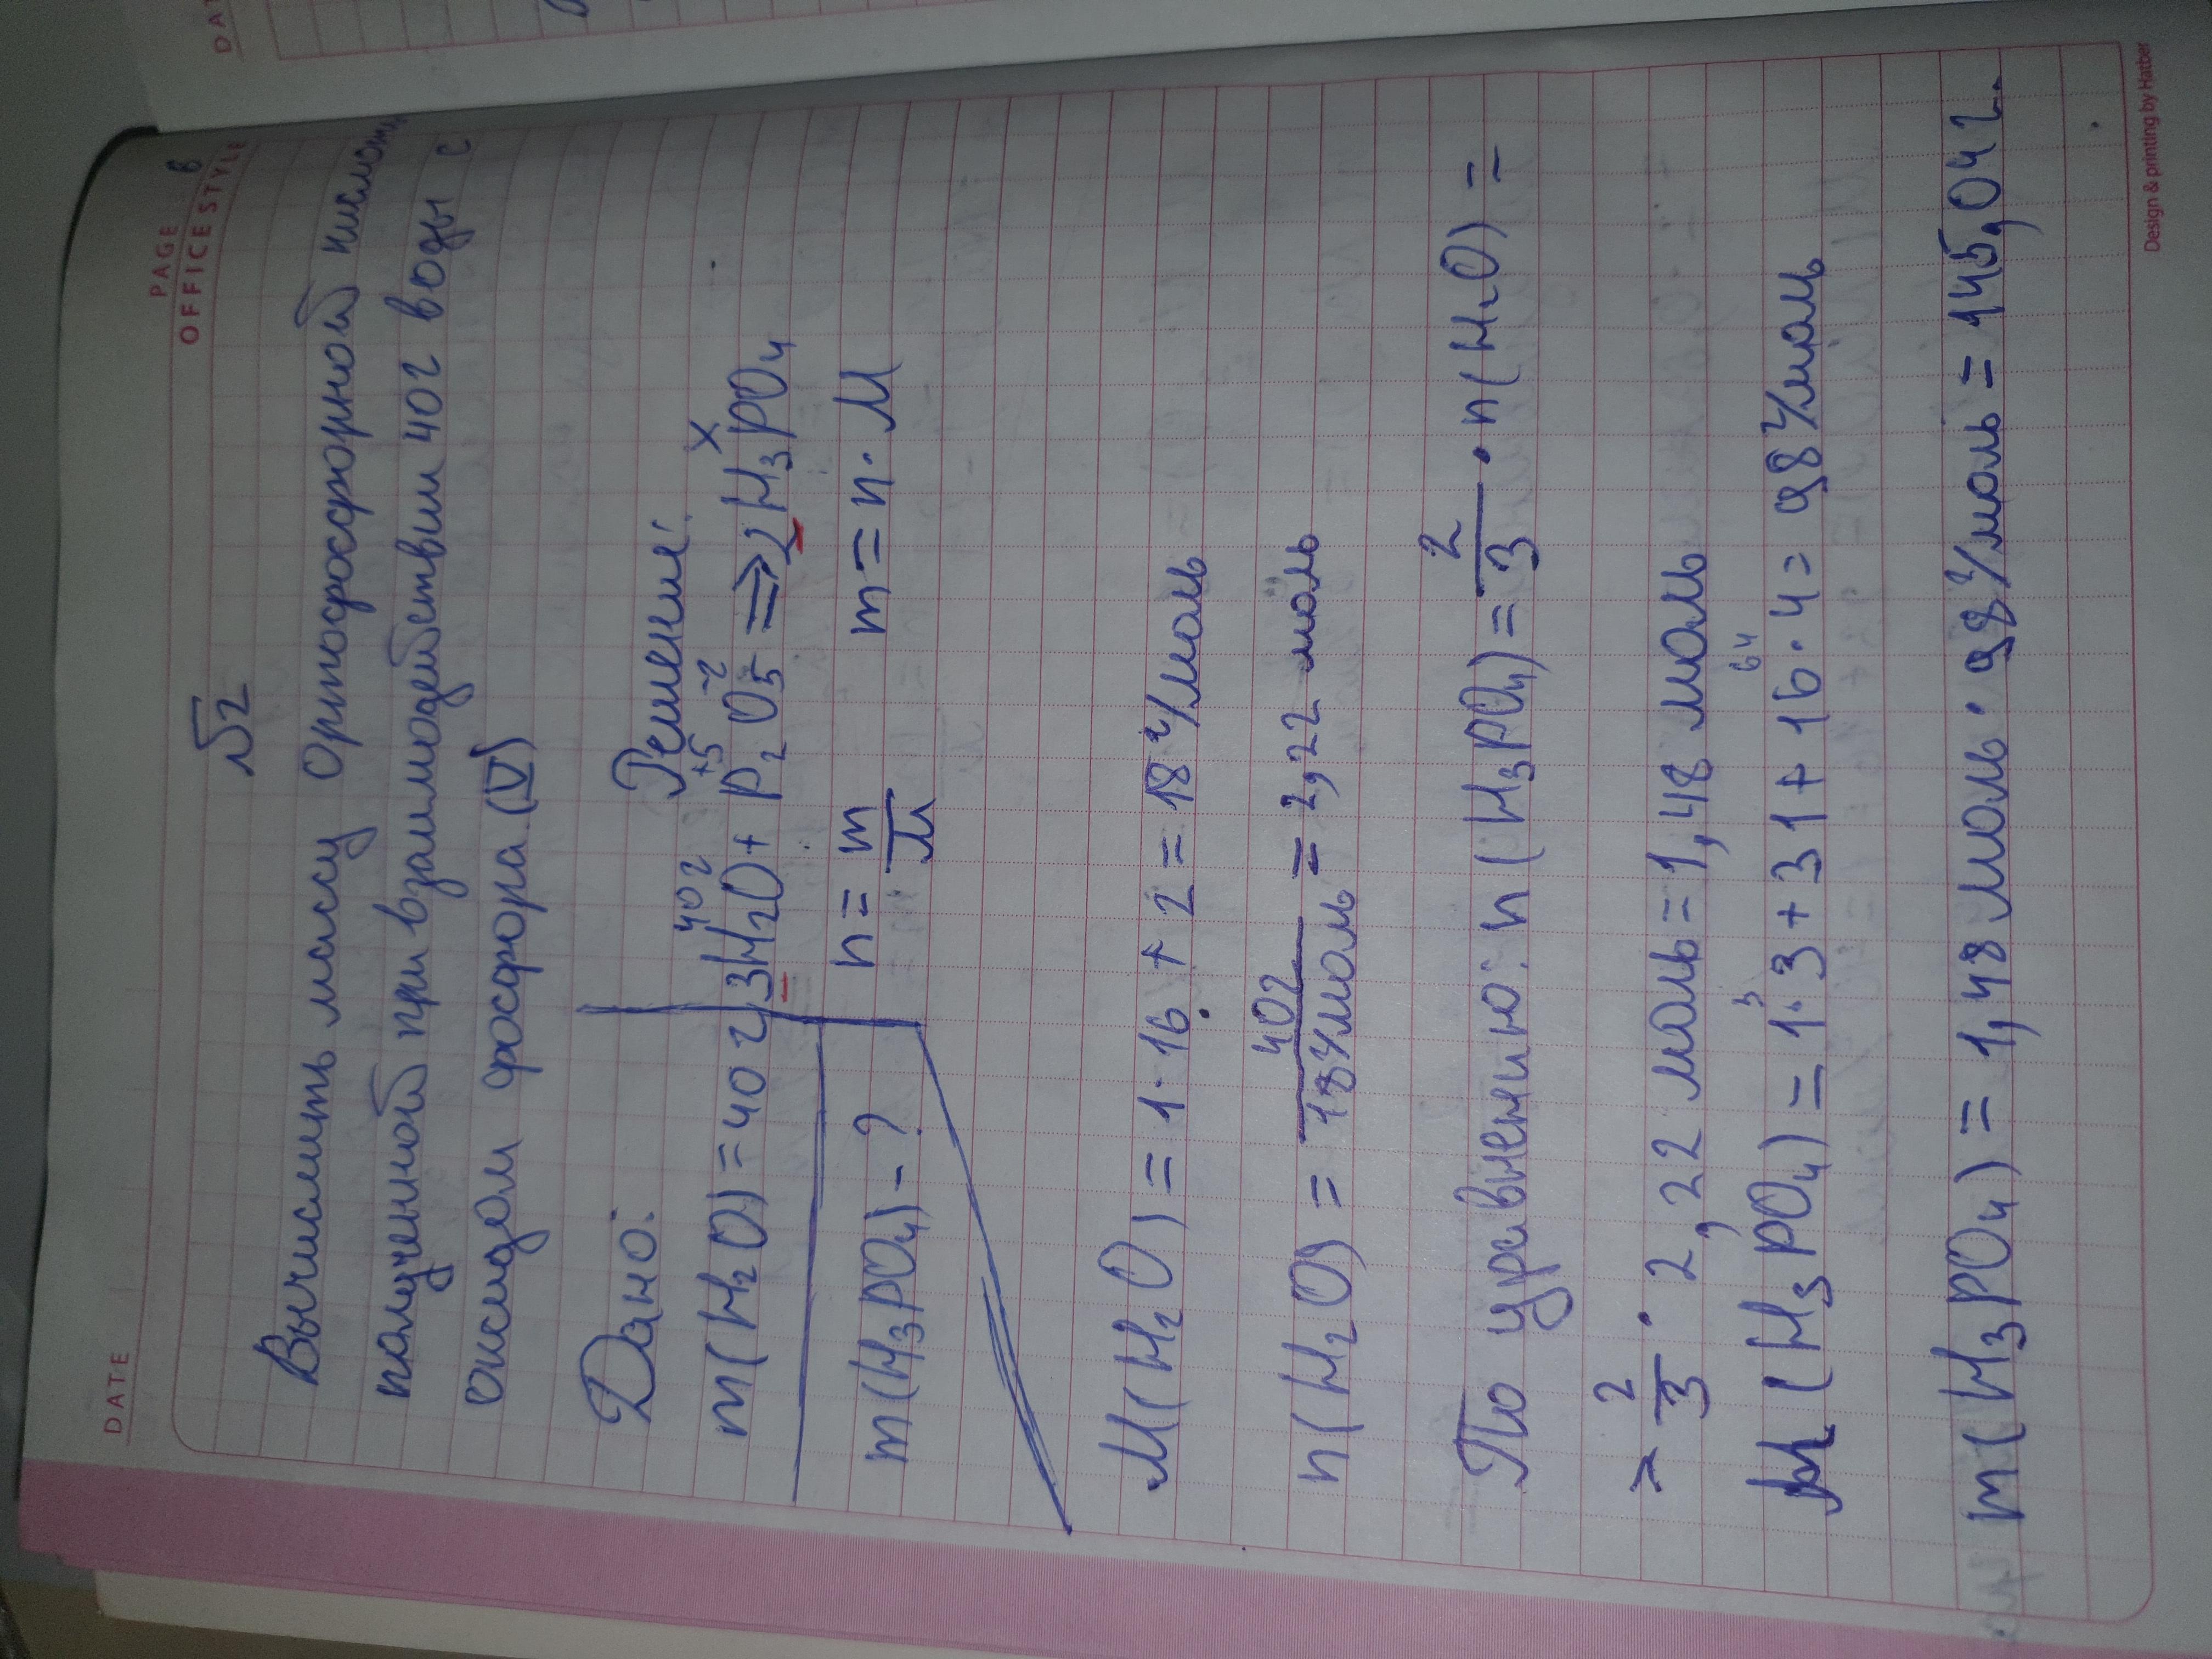 DATE
PAGE 6
OFFICE STYLE
№2
Вычислить массу Ортофосфорной кислоты
полученной при взаимодействии 40г воды с
оксидом фосфора (V)
Дано:
Решение:
m(H₂O)=40 г
40г +5 -2 x
3H₂O + P₂O₅ ⇒ 2H₃PO₄
m(H₃PO₄) - ?
n = m/M m = n · M
M(H₂O) = 1 · 16 + 2 = 18 г/моль
n(H₂O) = 40г/18 г/моль = 2,22 моль
По уравнению: n(H₃PO₄) = 2/3 · n(H₂O) =
= 2/3 · 2,22 моль = 1,48 моль
3 64
M(H₃PO₄) = 1·3 + 31 + 16·4 = 98 г/моль
m(H₃PO₄) = 1,48 моль · 98 г/моль = 145,04 г.
Design & printing by Hatber